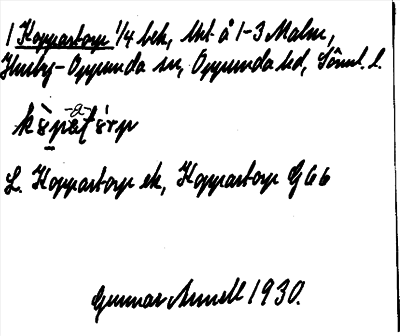 1 Koppartorp 1/4 bek, Utt å 1-3 Malm,
Husby-Oppunda sn, Oppunda hd, Söml. l.
-a-
L. Koppartorp ek, Koppartorp G 66
Gunnar Arnell 1930.